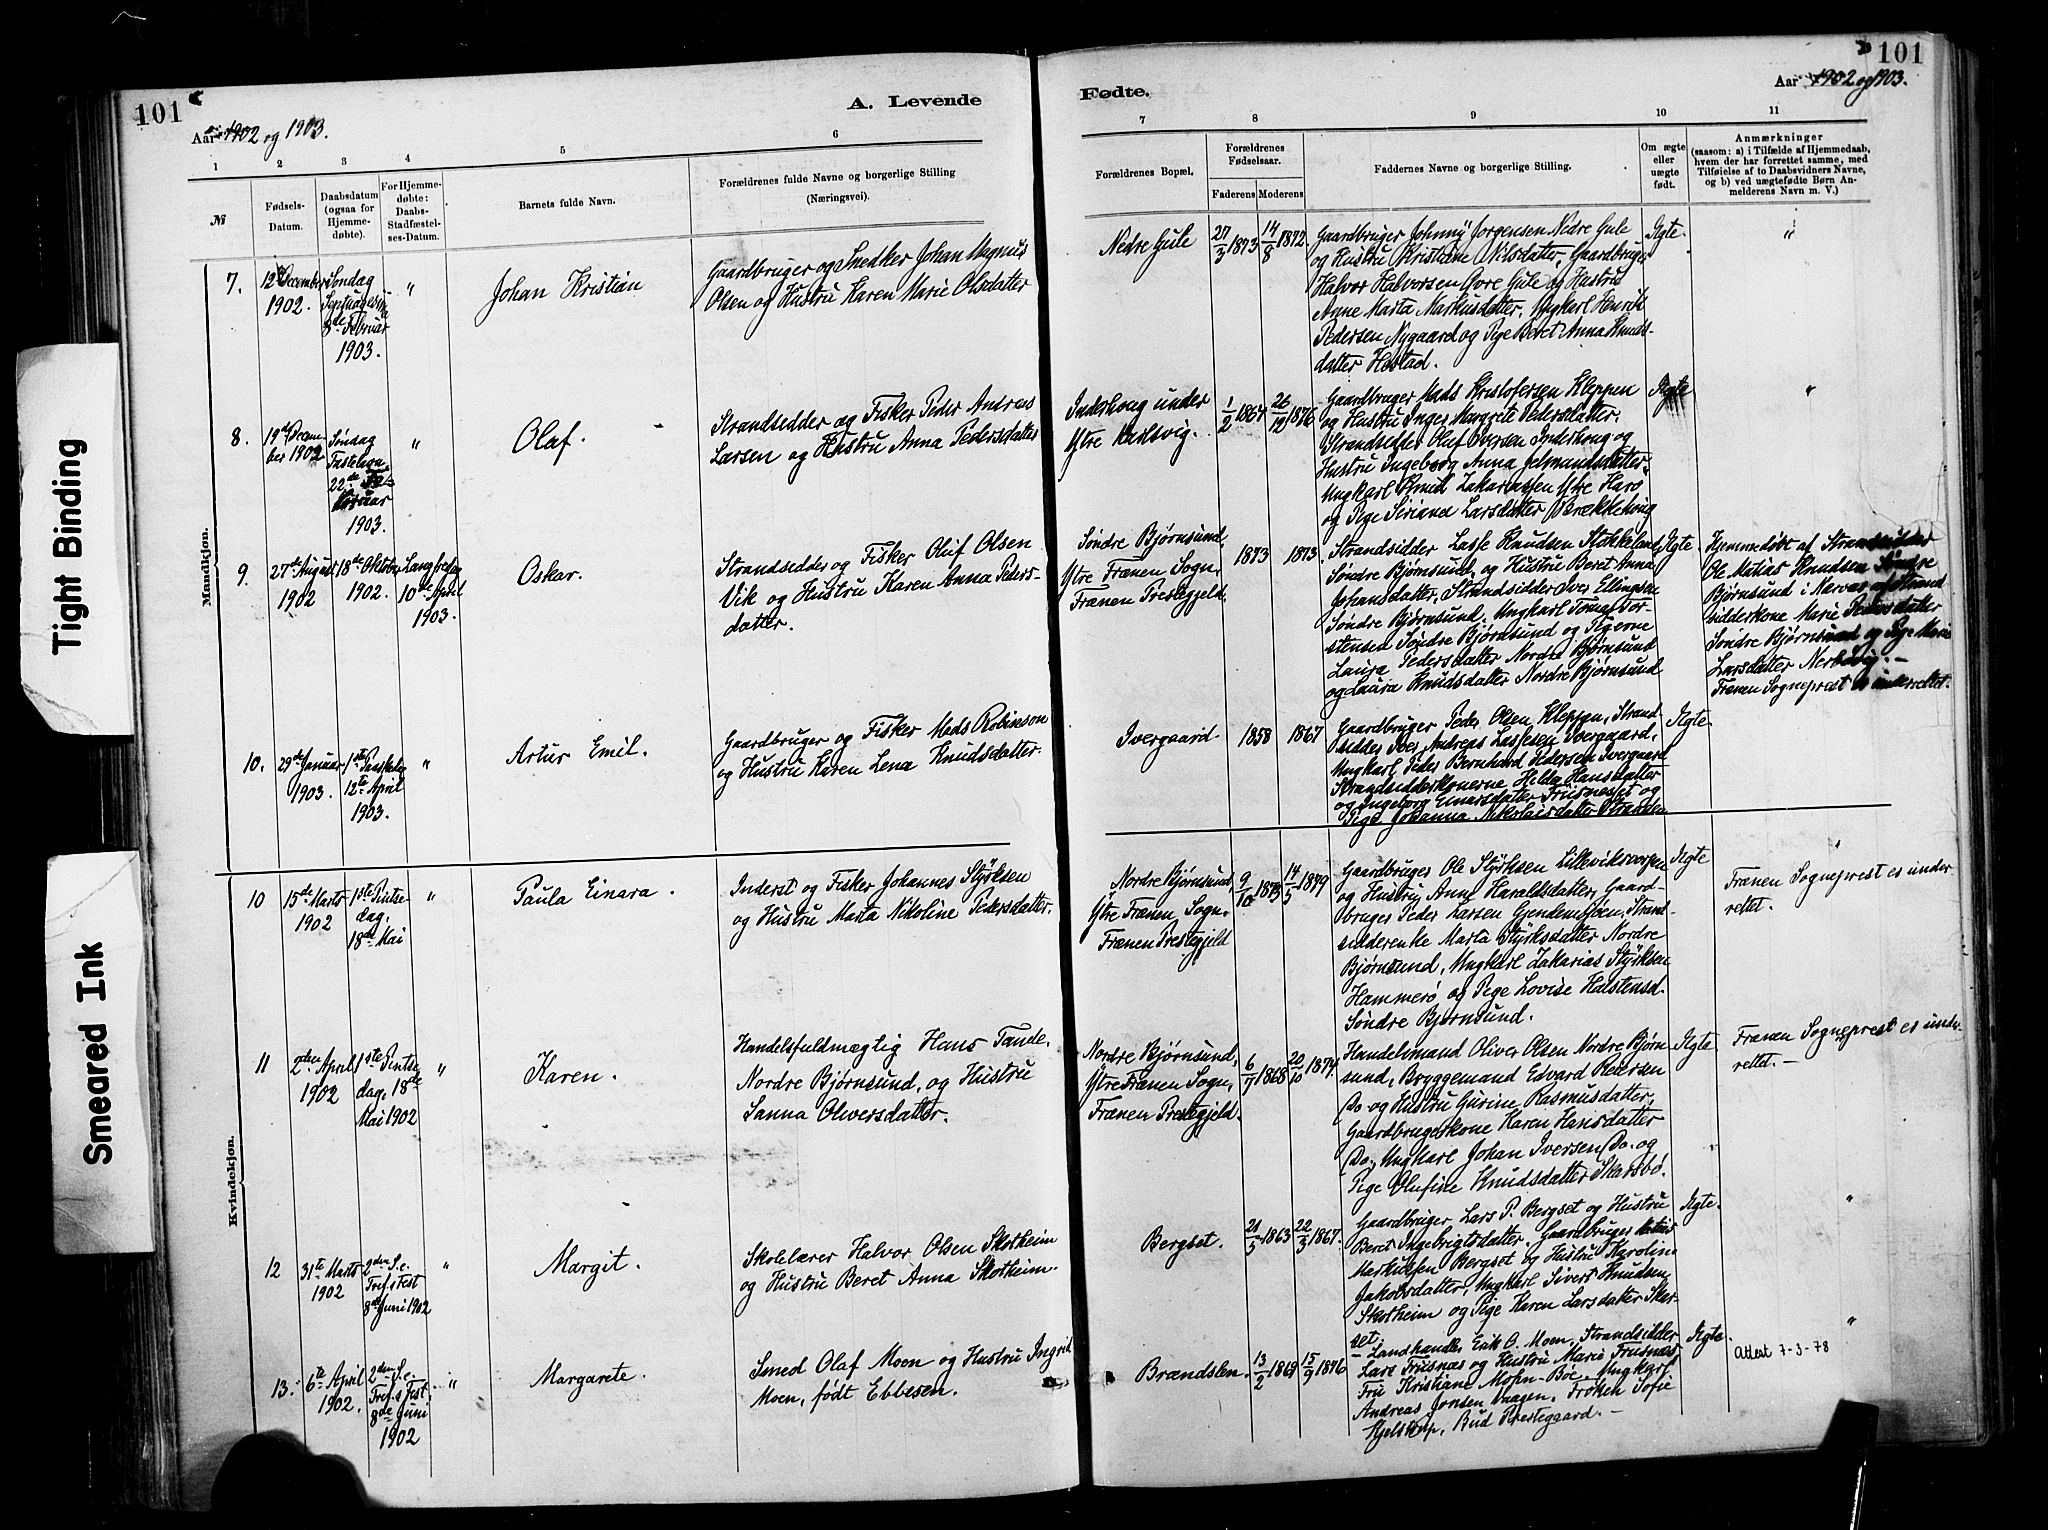 Tight Binding
Smeared Ink
101
A. Levende
Aar 1902 og 1903.
1 2 3 4 5 6
№
Fødsels-
Datum.
Daabsdatum
(ogsaa for
Hjemme-
døbte).
For Hjemme-
døbte:
Daabs-
Stadfæstel-
ses-Datum.
Barnets fulde Navn.
Forældrenes fulde Navne og borgerlige Stilling
(Næringsvei).
Mandkjøn.
7.
12te December
1902.
Søndag
Septuagesima
8de Februar
1903.
"
Johan Kristian
Gaardbruger og Snedker Johan Magnus
Olsen og Hustru Karen Marie Olsdatter
8.
19de Decem-
ber 1902
Søndag
Fastelavn
22de Fe-
bruar
1903.
"
Olaf.
Strandsidder og Fisker Peder Andreas
Larsen og Hustru Anna Pedersdatter
9.
27de August
1902
18de Oktober
1902.
Langfredag
10de April
1903.
Oskar.
Strandsidder og Fisker Oluf Olsen
Vik og Hustru Karen Anna Peders-
datter.
10.
29de Januar
1903.
1ste Paaskedag
12te April
1903.
"
Artur Emil.
Gaardbruger og Fisker Mads Robinson
og Hustru Karen Lena Knudsdatter.
Kvindekjøn.
10
15de Marts
1902
1ste Pintse-
dag.
18de Mai
"
Paula Einara.
Inderst og Fisker Johannes Styrksen
og Hustru Marta Nikoline Pedersdatter.
11
2den April
1902
1ste Pintse-
dag, 18de
Mai 1902
"
Karen.
Handelsfuldmægtig Hans Tande,
Nordre Bjørnsund, og Hustru
Sanna Oliversdatter.
12
31te Marts
1902
2den S. e.
Tref. s Fest
8de Juni 1902
"
Margit.
Skolelærer Halvor Olsen Skotheim
og Hustru Beret Anna Skotheim.
13.
6te April
1902.
2den S. e.
Tref. s Fest.
8de Juni
1902
"
Margarete.
Smed Olaf Moen og Hustru Ingrid
Moen, født Ebbesen.
Fødte.
101
Aar 1902 og 1903.
7 8 9 10 11
Forældrenes Bopæl.
Forældrenes
Fødselsaar.
Faderens Moderens
Faddernes Navne og borgerlige Stilling.
Om ægte
eller
uægte
født.
Anmærkninger
(saasom: a) i Tilfælde af Hjemmedaab,
hvem der har forrettet samme, med
Tilføielse af to Daabsvidners Navne,
og b) ved uægtefødte Børn An-
melderens Navn m. V.)
Nedre Gule
27/3 1873
14/8 1872.
Gaardbruger Johnny Jørgensen Nedre Gule
og Hustru Kristiane Nilsdatter, Gaardbruger
Halvor Halvorsen Øvre Gule og Hustru
Anne Marta Markusdatter, Ungkarl Henrik
Pedersen Nygaard og Pige Beret Anna Knuds-
datter Hostad.
Ægte.
"
Inderhoug under
Ytre Karlsvig.
1/2 1864
26/12 1876
Gaardbruger Mads Kristofersen Kleppen
og Hustru Inger Margrete Pedersdatter.
Strandsidder Oluf Iversen Inderhoug og
Hustru Ingeborg Anna Jelmundsdatter,
Ungkarl Knud Zakariassen Ytre Harø
og Pige Larsdatter Brækkehoug
Ægte
"
Søndre Bjørnsund,
Ytre Frænen Sogn,
Frænen Prestegjeld.
1873
1873.
Strandsidder Lasse Knudsen Stokkeland,
Søndre Bjørnsund, og Hustru Beret Anna
Johansdatter, Strandsidder Iver Ellingsen
Søndre Bjørnsund, Ungkarl Tomas Tor-
stensen Søndre Bjørnsund og Pigerne
Laura Pedersdatter Nordre Bjørnsund
og Laura Knudsdatter Nordre Bjørnsund
Ægte
Hjemmedøbt af Strandsidder
Ole Matias Knudsen Søndre
Bjørnsund i Nærvær af Strand
sidderkone Marie Pedersdatter
Søndre Bjørnsund og Pige Marie
Larsdatter Nerbøvig.—
Frænen Sogneprest er underrettet.
Ivergaard
1858
1867
Gaardbruger Peder Olsen Kleppen, Strand-
sidder Iver Andreas Lassesen Ivergaard,
Ungkarl Peder Bernhard Pedersen Ivergaard
Strandsidderkonerne Helda Hansdatter
og Ingeborg Einarsdatter Friisneset og
Pige Johanna Nikolaisdatter Stranden
Ægte.
"
Nordre Bjørnsund,
Ytre Frænen Sogn,
Frænen Prestegjeld
9/10 1873
14/5 1879
Gaardbruger Ole Styrksen Lilleviksvorpen
og Hustru Anne Haraldsdatter, Gaard-
bruger Peder Larsen Gjendemsjøen, Strand-
sidderenke Marta Styrksdatter Nordre
Bjørnsund, Ungkarl Zakarias Styrksen
Hammerø og Pige Lovise Halstensd.
Søndre Bjørnsund.
Ægte
Frænen Sogneprest er under
rettet.
Nordre Bjørnsund,
Ytre Frænen Sogn,
Frænen Prestegjeld.
6/7 1868
20/10 1874.
Handelsmand Oliver Olsen Nordre Bjørn-
sund, Bryggemand Edvard Pedersen
Do. og Hustru Gurine Rasmusdatter,
Gaardbrugerkone Karen Hansdatter
Do., Ungkarl Johan Iversen Do. og
Pige Olufine Knudsdatter Skarsbø.
Ægte
Frænen Sogneprest er under-
rettet.—
Bergset.
21/5 1863
22/3 1867.
Gaardbruger Lars P. Bergset og Hustru
Beret Ingebrigtsdatter. Gaardbruger
Markussen Bergset og Hustru Karoline
Jakobsdatter, Ungkarl Sivert Knudsen
Skotheim og Pige Karen Larsdatter Skar-
set.
Ægte.
"
Brændslen.
13/2 1869
15/9 1876
Landhandler Erik O. Moen, Strandsidder
Lars Friisnæs og Hustru Marie Friisnæs,
Fru Kristiane Mohn-Boe, Ungkarl
Andreas Jonsen Vaagen, Frøken Sofie
Hjelstrup, Bud Prestegaard.—
Ægte.
"
Attest 7-3-78